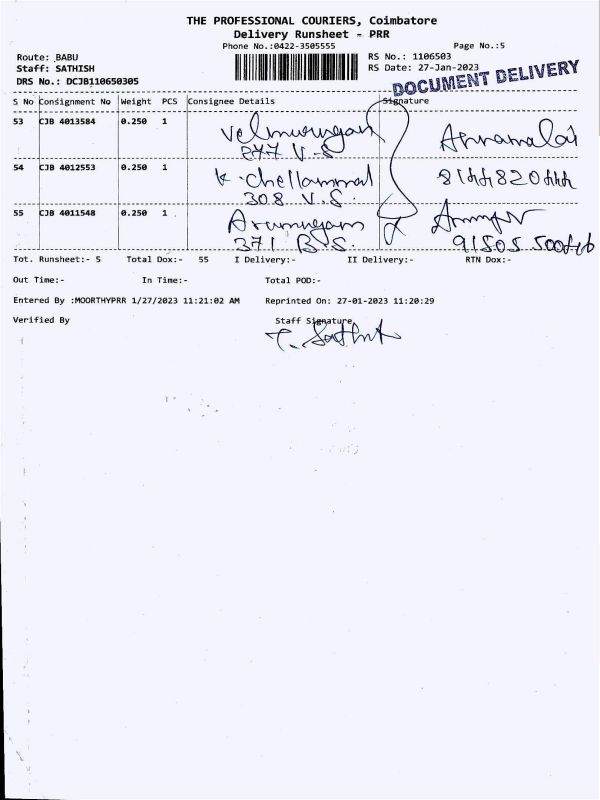 THE PROFESSIONAL COURIERS, Coimbatore
Delivery Runsheet - PRR
Phone No.:0422-3505555 Page No.:5
Route: BABU RS No.: 1106503
Staff: SATHISH RS Date: 27-Jan-2023
DRS No.: DCJB110650305
DOCUMENT DELIVERY
S No Consignment No Weight PCS Consignee Details Signature
53 CJB 4013584 0.250 1 Velmurugan Annamalai
877 V.S
54 CJB 4012553 0.250 1 K. Chellammal
308 V.S.
55 CJB 4011548 0.250 1 Arumugam
371 B.S.
Tot. Runsheet:- 5 Total Dox:- 55 I Delivery:- II Delivery:- RTN Dox:-
Out Time:- In Time:- Total POD:-
Entered By :MOORTHYPRR 1/27/2023 11:21:02 AM Reprinted On: 27-01-2023 11:20:29
Verified By Staff Signature